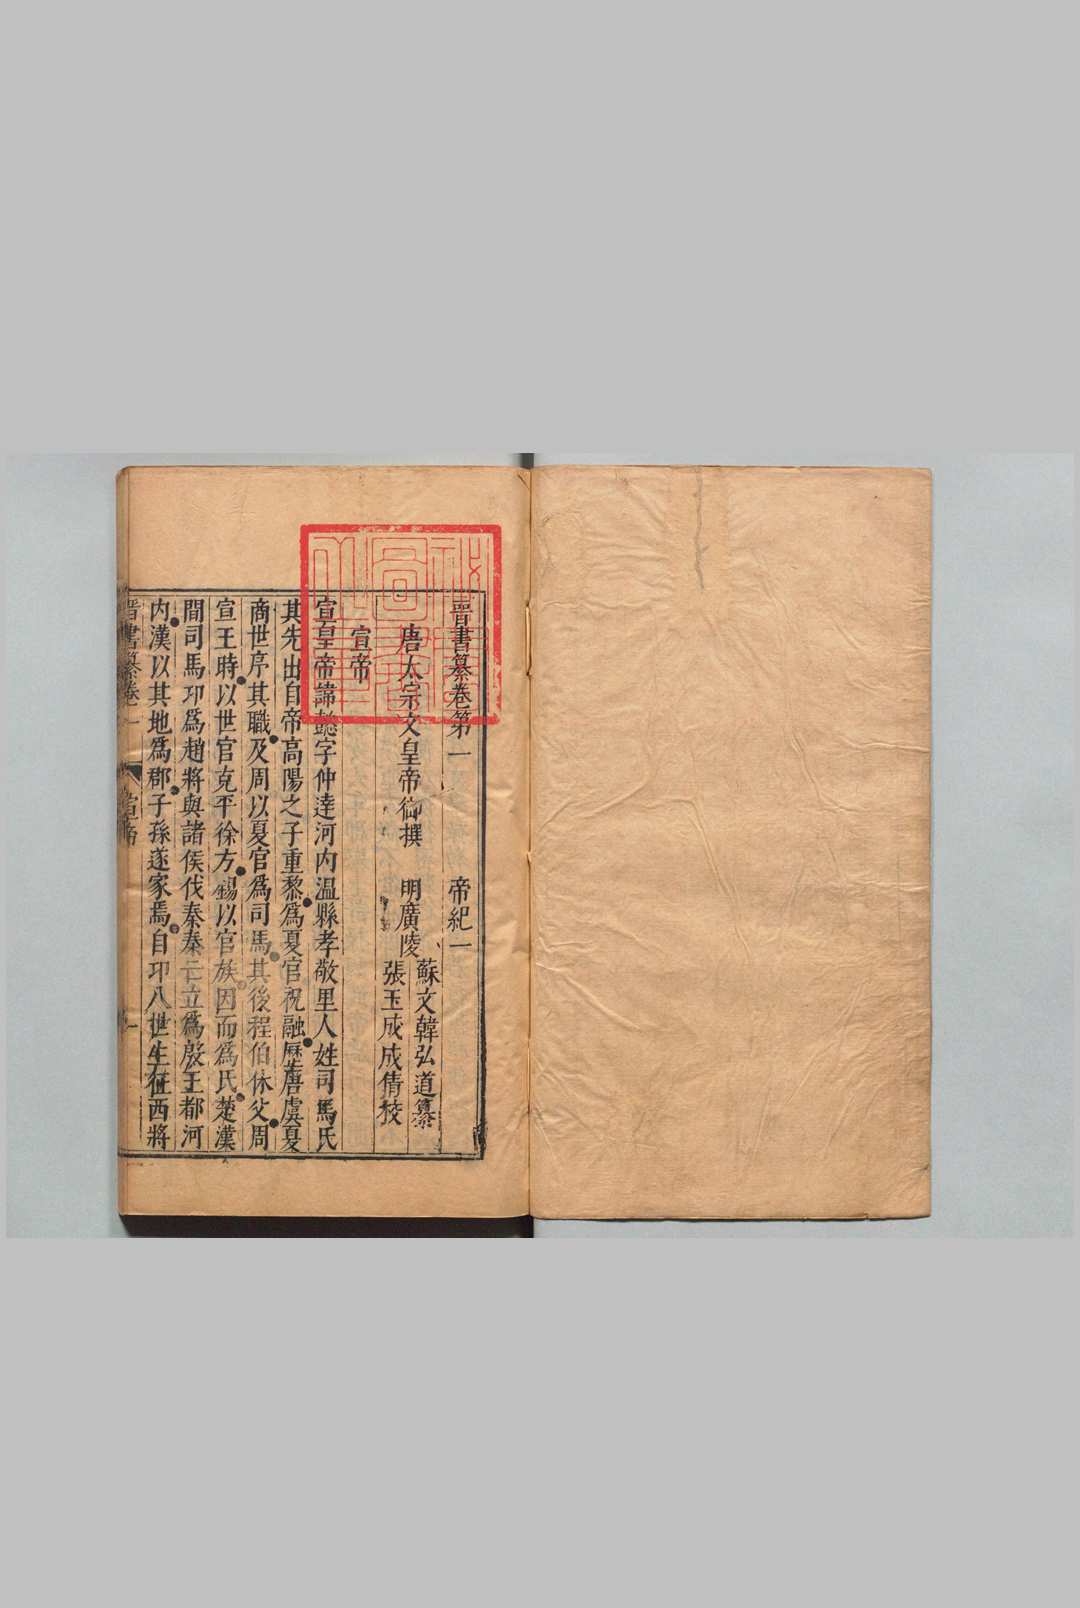 晉書纂卷第一 帝紀一
唐太宗文皇帝御撰 明廣陵
蘇文韓弘道纂
張玉成成倩校
宣帝
宣皇帝諱懿字仲達河内温縣孝敬里人姓司馬氏
其先出自帝高陽之子重黎爲夏官祝融歷唐虞夏
商世序其職及周以夏官爲司馬其後程伯休父周
宣王時以世官克平徐方錫以官族因而爲氏楚漢
間司馬卬爲趙將與諸侯伐秦秦亡立爲殷王都河
内漢以其地爲郡子孫遂家焉自卬八世生征西將
晉書纂卷一 宣帝 一